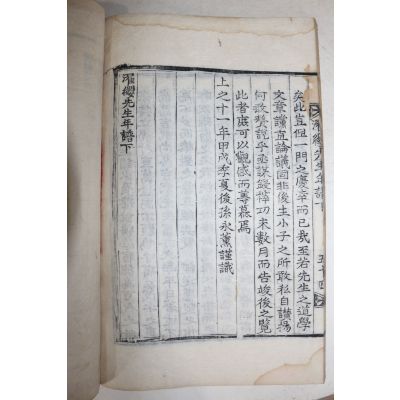 濯纓先生年譜下
五十四
矣此豈但一門之慶幸而已哉至若先生之道學
文章讜直論議固非後生小子之所敢私自讃揚
何敢贅說乎亟謀錄梓功未數月而告竣後之覽
此者庶可以觀感而尊慕焉
上之十一年甲戌季夏後孫永薰謹識
濯纓先生年譜下